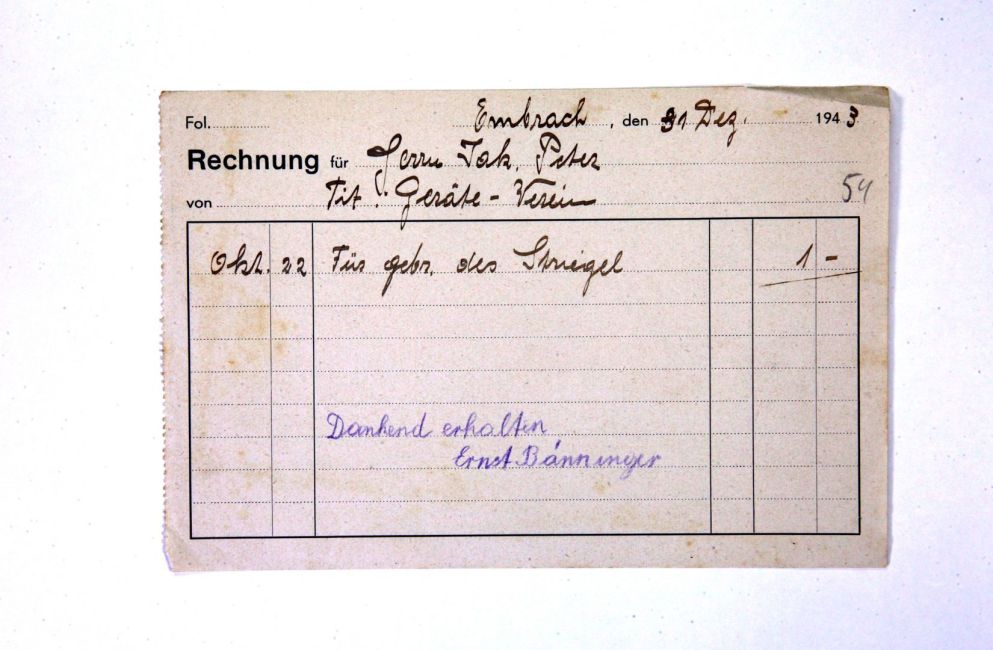 Fol. Embrach, den 31 Dez. 1943
Rechnung für Herrn Jak. Peter
von Tit. Geräte-Verein 54
Okt. 22 Für gebr. des Striegel 1 -
Dankend erhalten
Ernst Bänninger